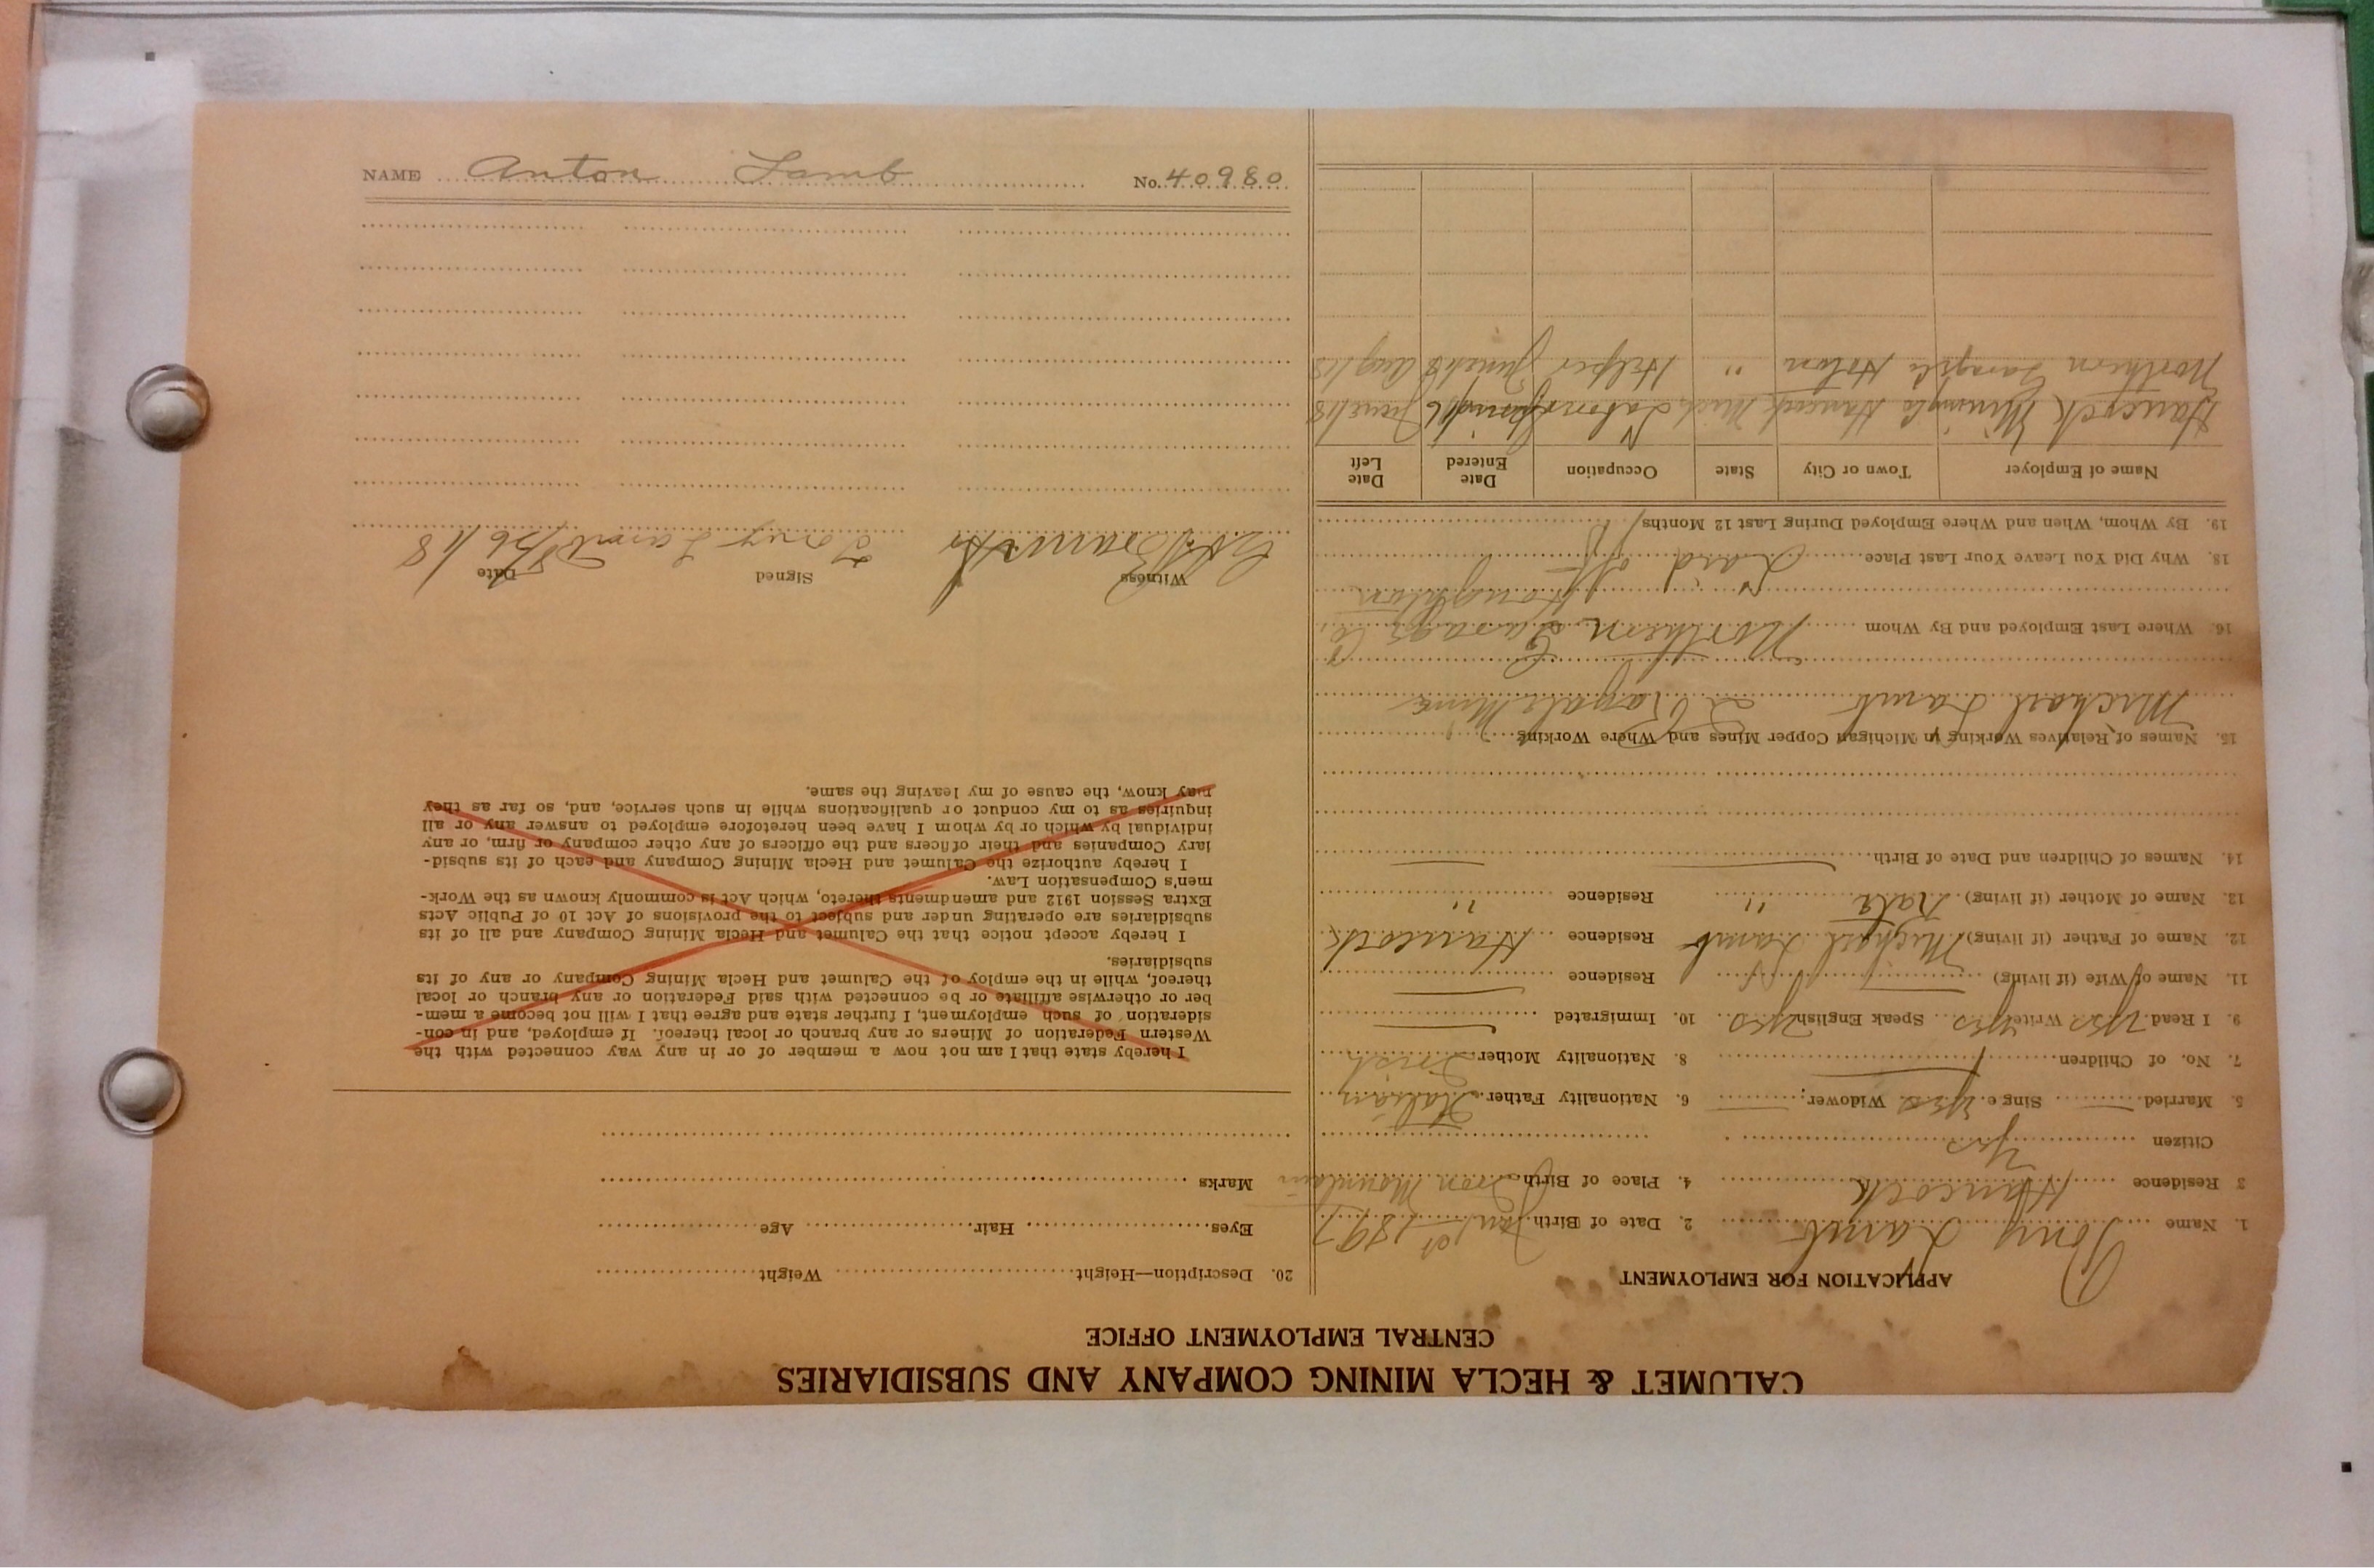 CALUMET & HECLA MINING COMPANY AND SUBSIDIARIES
CENTRAL EMPLOYMENT OFFICE
APPLICATION FOR EMPLOYMENT
1. Name Tony Lamb 2. Date of Birth Jan 1st 1897
3 Residence Hancock 4. Place of Birth Iron Mountain
Citizen Yes
5. Married Single Yes Widower; 6. Nationality Father Italian
7. No. of Children 8. Nationality Mother Irish
9. I Read Yes Write Yes Speak English Yes 10. Immigrated
11. Name of Wife (if living) Residence
12. Name of Father (if living) Michael Lamb Residence Hancock
13. Name of Mother (if living) Kate " Residence "
14. Names of Children and Date of Birth
15. Names of Relatives Working in Michigan Copper Mines and Where Working
Michael Lamb Mine
16. Where Last Employed and By Whom Northern Garage Co.
Houghton
18. Why Did You Leave Your Last Place Laid off
19. By Whom, When and Where Employed During Last 12 Months
Name of Employer Town or City State Occupation Date Entered Date Left
Hancock Mining Co Hancock Mich. Labor 16 June/18
Northern Garage Co Hoton " Helper June/18 Aug/18
20. Description—Height Weight
Eyes Hair Age
Marks
I hereby state that I am not now a member of or in any way connected with the
Western Federation of Miners or any branch or local thereof. If employed, and in con-
sideration of such employment, I further state and agree that I will not become a mem-
ber or otherwise affiliate or be connected with said Federation or any branch or local
thereof, while in the employ of the Calumet and Hecla Mining Company or any of its
subsidiaries.
I hereby accept notice that the Calumet and Hecla Mining Company and all of its
subsidiaries are operating under and subject to the provisions of Act 10 of Public Acts
Extra Session 1912 and amendments thereto, which Act is commonly known as the Work-
men's Compensation Law.
I hereby authorize the Calumet and Hecla Mining Company and each of its subsid-
iary Companies and their officers and the officers of any other company or firm, or any
individual by which or by whom I have been heretofore employed to answer any or all
inquiries as to my conduct or qualifications while in such service, and, so far as they
may know, the cause of my leaving the same.
Witness Signed Date
Tony Lamb 8/26/18
NAME Anton Lamb No. 40980